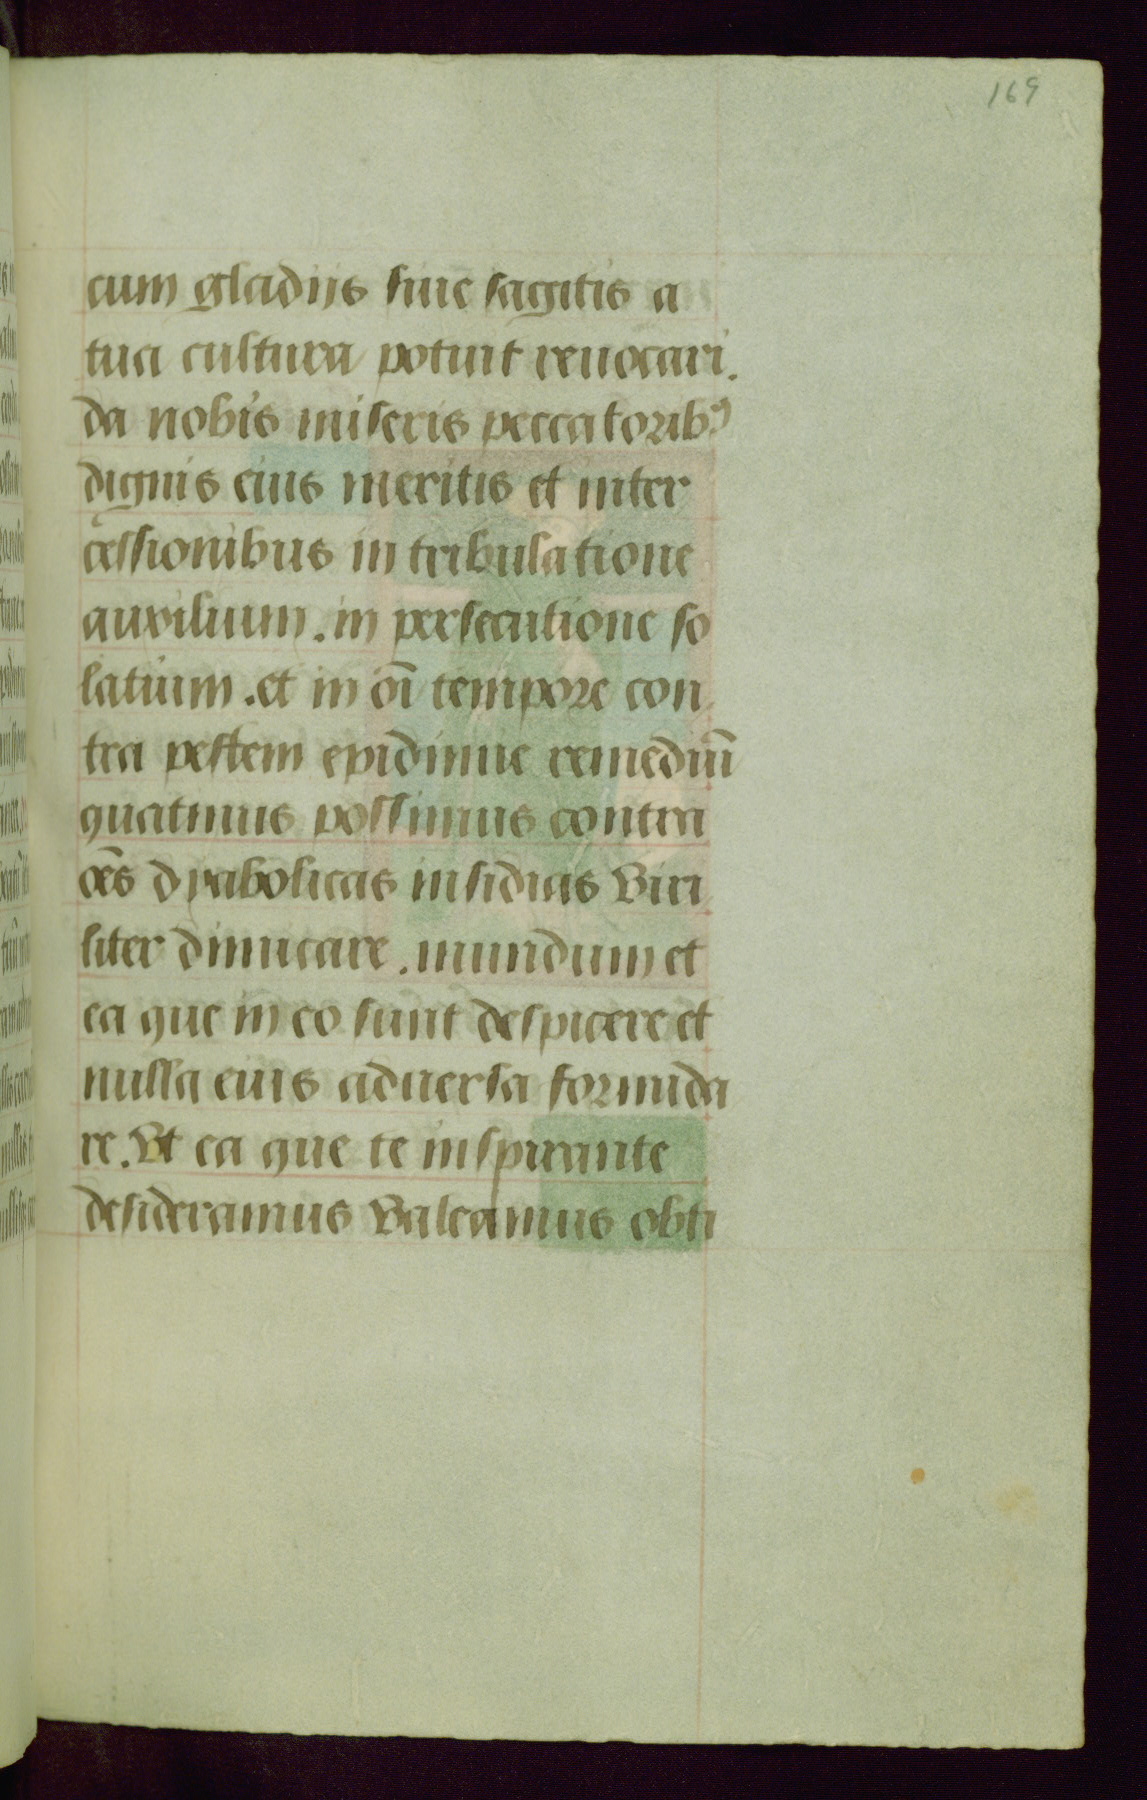 169
cum gladijs siue sagitis a
tua cultura potuit reuocari.
da nobis miseris peccatoribꝰ
dignis eius meritis et inter
cessionibus in tribulatione
auxilium. in persecutione so
latium. et in oı̄ tempore con
tra pestem epidimie remediū
quatinus possimus contra
oēs dyabolicas insidias viri
liter dimicare. mundum et
ea que in eo sunt despicere et
nulla eius aduersa formida
re. Vt ea que te inspirante
desideramus valeamus obti